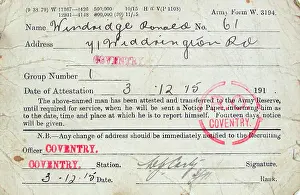 (9 38 79) W 11367—4428 500,000 10/15 H & V (P 1103)
12901—4718 500,000 Army Form W. 3194.
Name Windridge Ronald No. 61
Address 41 Widdrington Rd
COVENTRY.
Group Number 1
Date of Attestation 3 12 15 191 .
The above-named man has been attested and transferred to the Army Reserve,
until required for service, when he will be sent a Notice Paper, informing him as
to the date, time and place at which he is to report himself. Fourteen days, notice
will be given.
N.B.—Any change of address should be immediately notified to the Recruiting
Officer COVENTRY.
COVENTRY.
COVENTRY. Station. Signature.
3 - 12 - 15 Date. Rank.